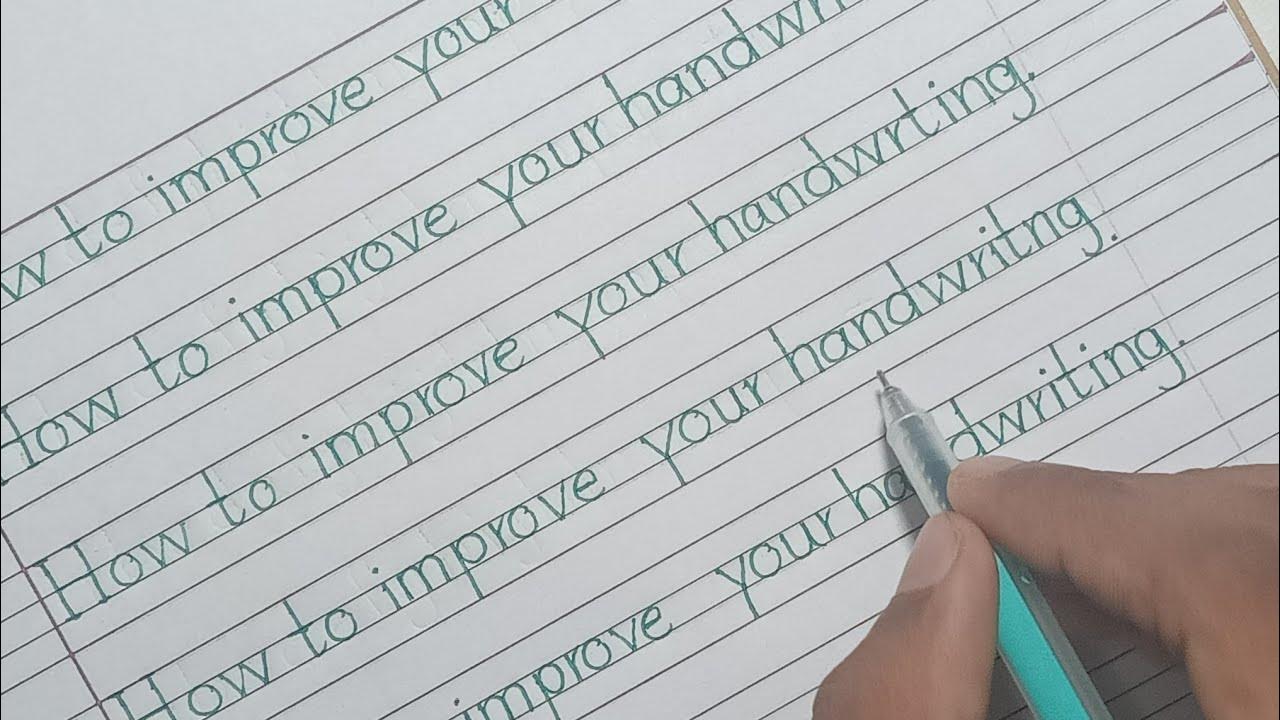 w to improve your
How to improve your handwr
How to improve your handwrting.
How to improve your handwritng.
improve your handwriting.